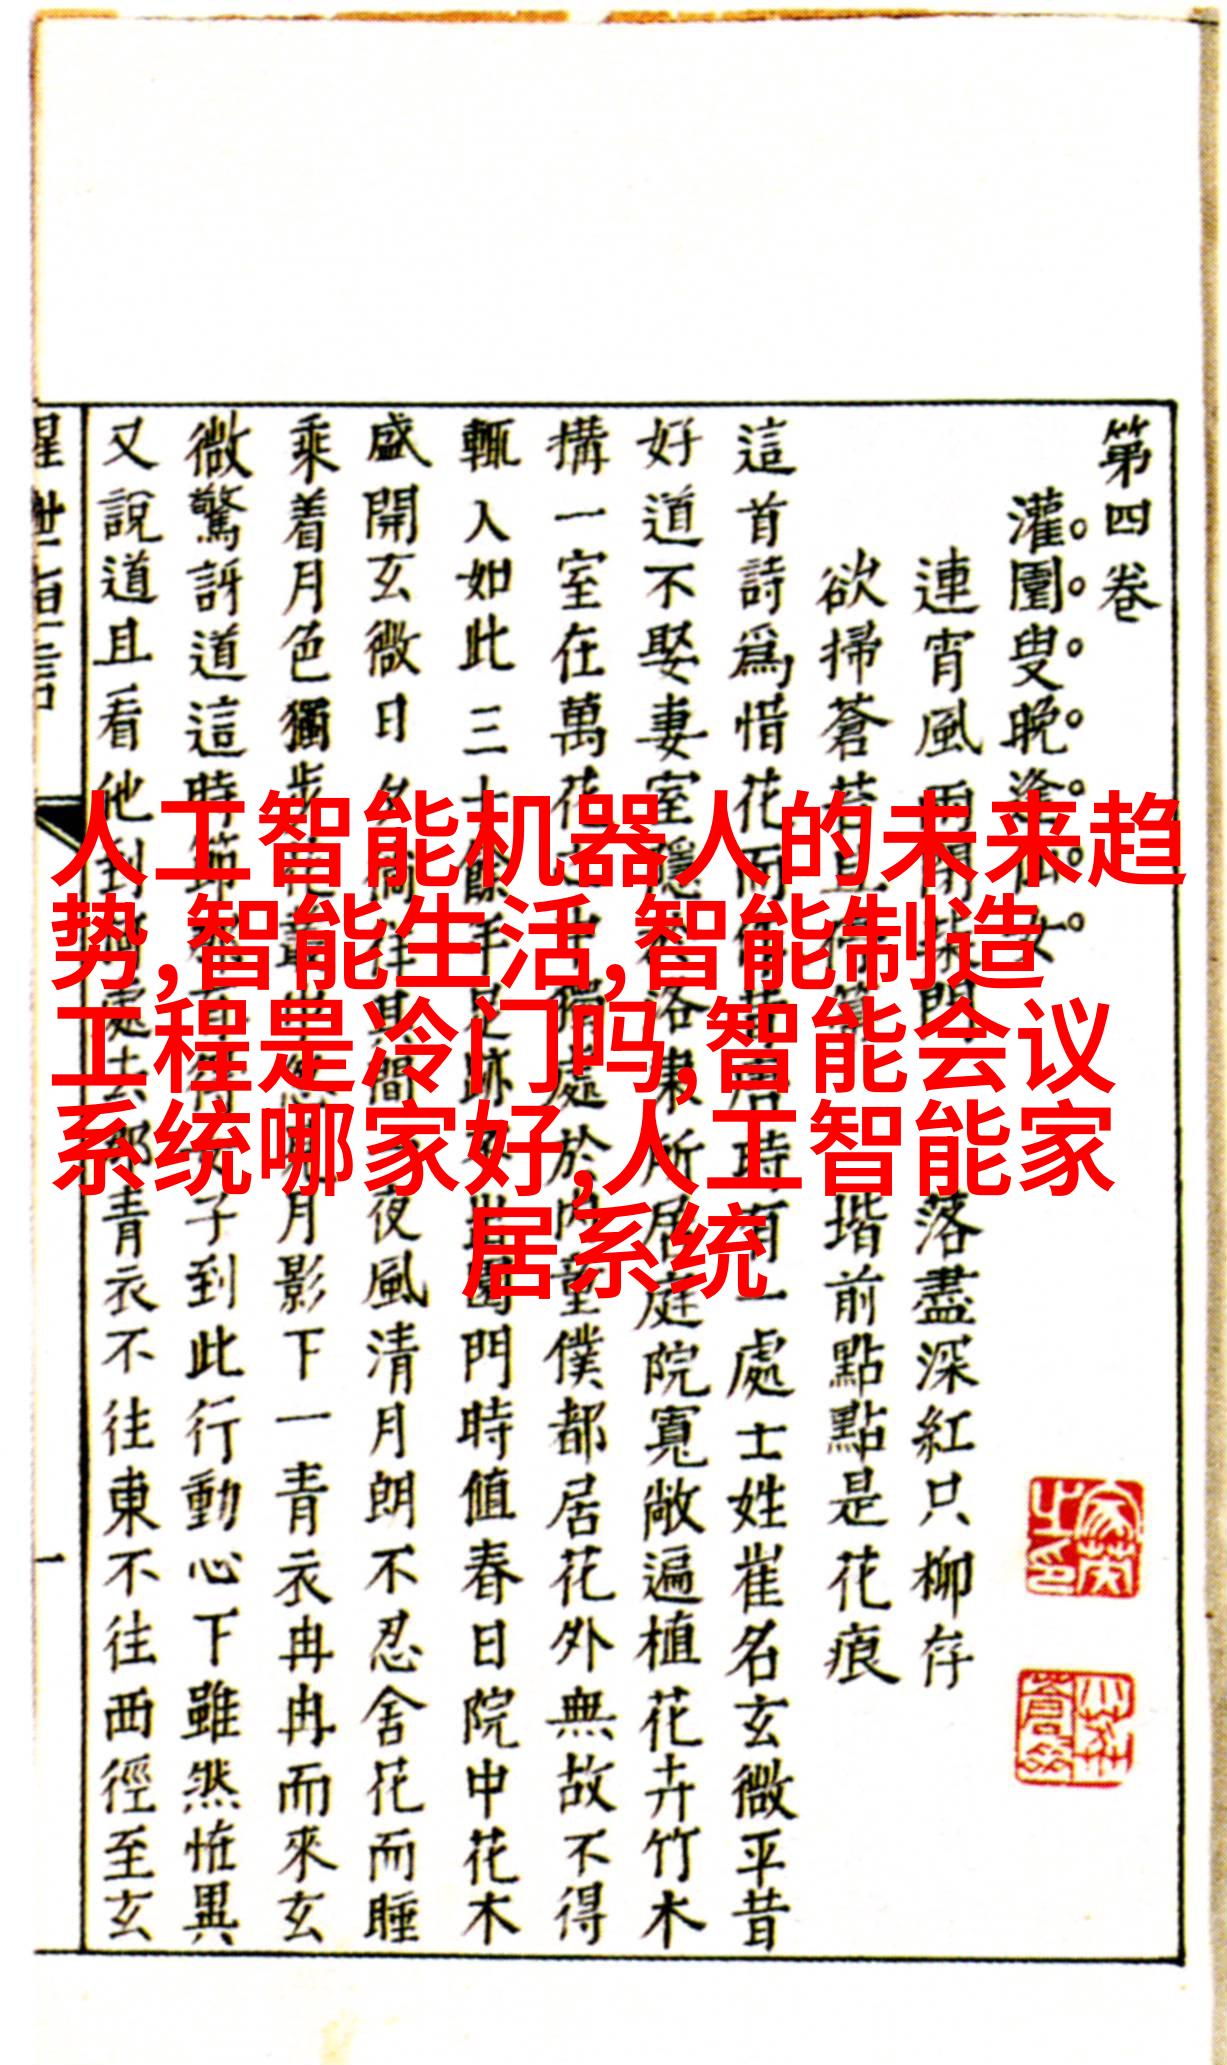 第四卷
灌園叟晚逢仙女
連宵風雨閉門落盡深紅只柳存
欲掃蒼苔且停堦前點點是花痕
這首詩爲惜花而作唐時有一處士姓崔名玄微平昔
好道不娶妻室隱洛東所居庭院寬敞遍植花卉竹木
搆一室在萬花之中獨處於內童僕都居花外無故不得
輒入如此三十餘年足跡不出園門時值春日院中花木
盛開玄微日夕徜徉其間一夜風清月朗不忍舍花而睡
乘着月色獨步花叢中忽見月影下一青衣冉冉而來玄
微驚訝道這時節得子到此行動心下雖然怪異
又說道且看他到處去那青衣不往東不往西徑至玄
一
人工智能机器人的未来趋
势,智能生活,智能制造
工程是冷门吗,智能会议
系统哪家好,人工智能家
居系统